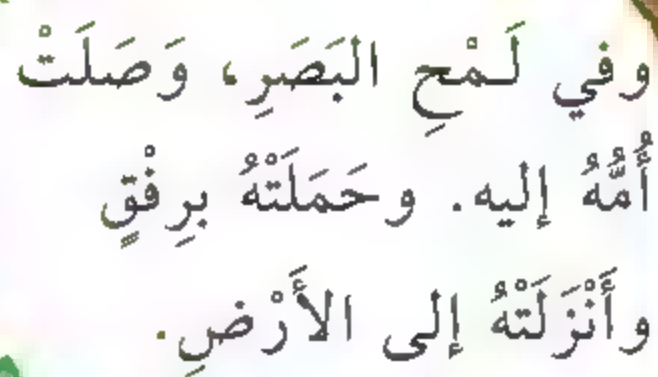 وفي لَمْحِ البَصَرِ، وَصَلَتْ
أُمُّهُ إليه. وحَمَلَتْهُ بِرِفْقٍ
وأَنْزَلَتْهُ إلى الأَرْضِ.